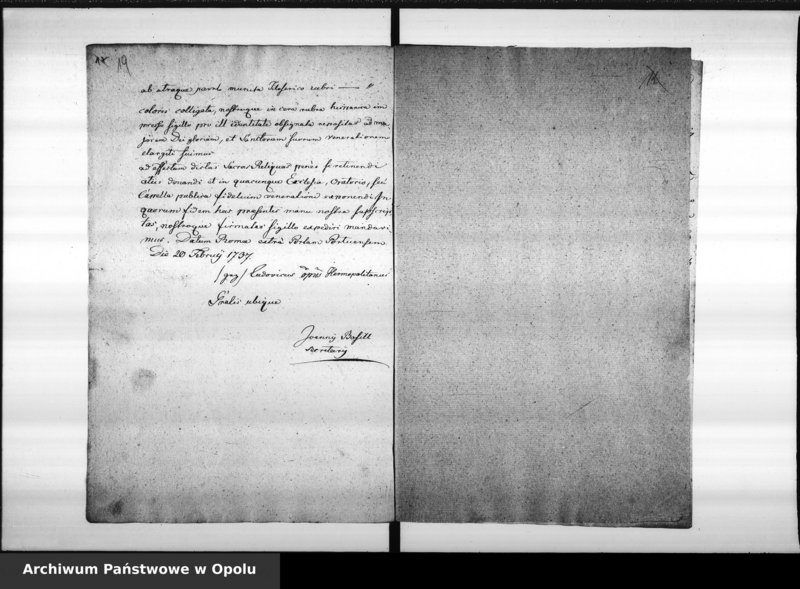 19
ab utraque parte munita Filo serico rubri
coloris colligata, nostroque in cera rubra hispanica im
presso sigillo pro identitate obsignata ad ma
jorem Dei gloriam, et Sanctorum suorum venerationem
elargiti fuimus
ad effectum dictas Sacras Reliquias penes se retinendi
aliis donandi et in quacunque Ecclesia, Oratorio, seu
Capella publica fidelium venerationi exponendi In
quorum fidem has praesentes manu nostra subscrip
tas, nostroque firmatas sigillo expediri mandavi
mus. Datum Romae extra Portam Portuensem
Die 20 Febru 1737.
Ludovicus Hermopolitanus
Gratis ubique
Joannes
Secretary
Archiwum Państwowe w Opolu